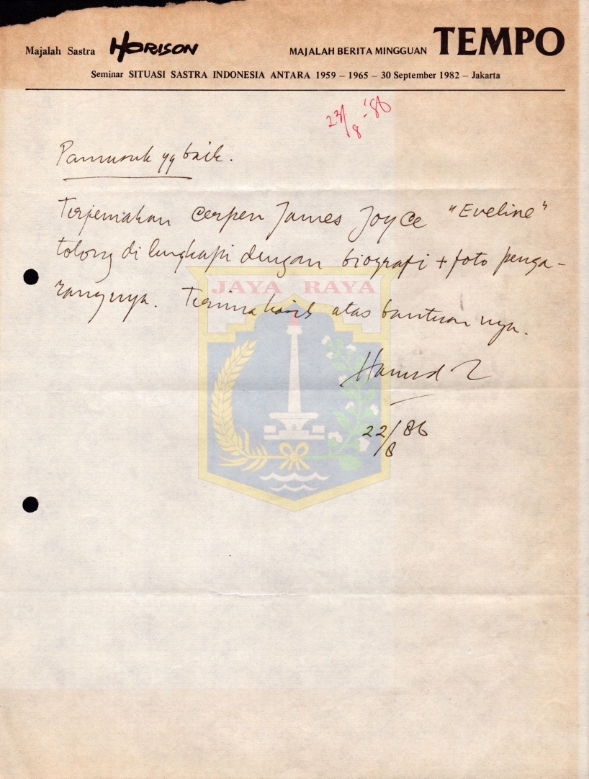 Majalah Sastra HORISON MAJALAH BERITA MINGGUAN TEMPO
Seminar SITUASI SASTRA INDONESIA ANTARA 1959 – 1965 – 30 September 1982 – Jakarta
23/8 - '86
Pamusuk yg baik.
Terjemahan cerpen James Joyce "Eveline"
tolong dilengkapi dengan biografi + foto penga-
rangnya. Terima kasih atas bantuannya.
JAYA RAYA
Hamid
22/8 86